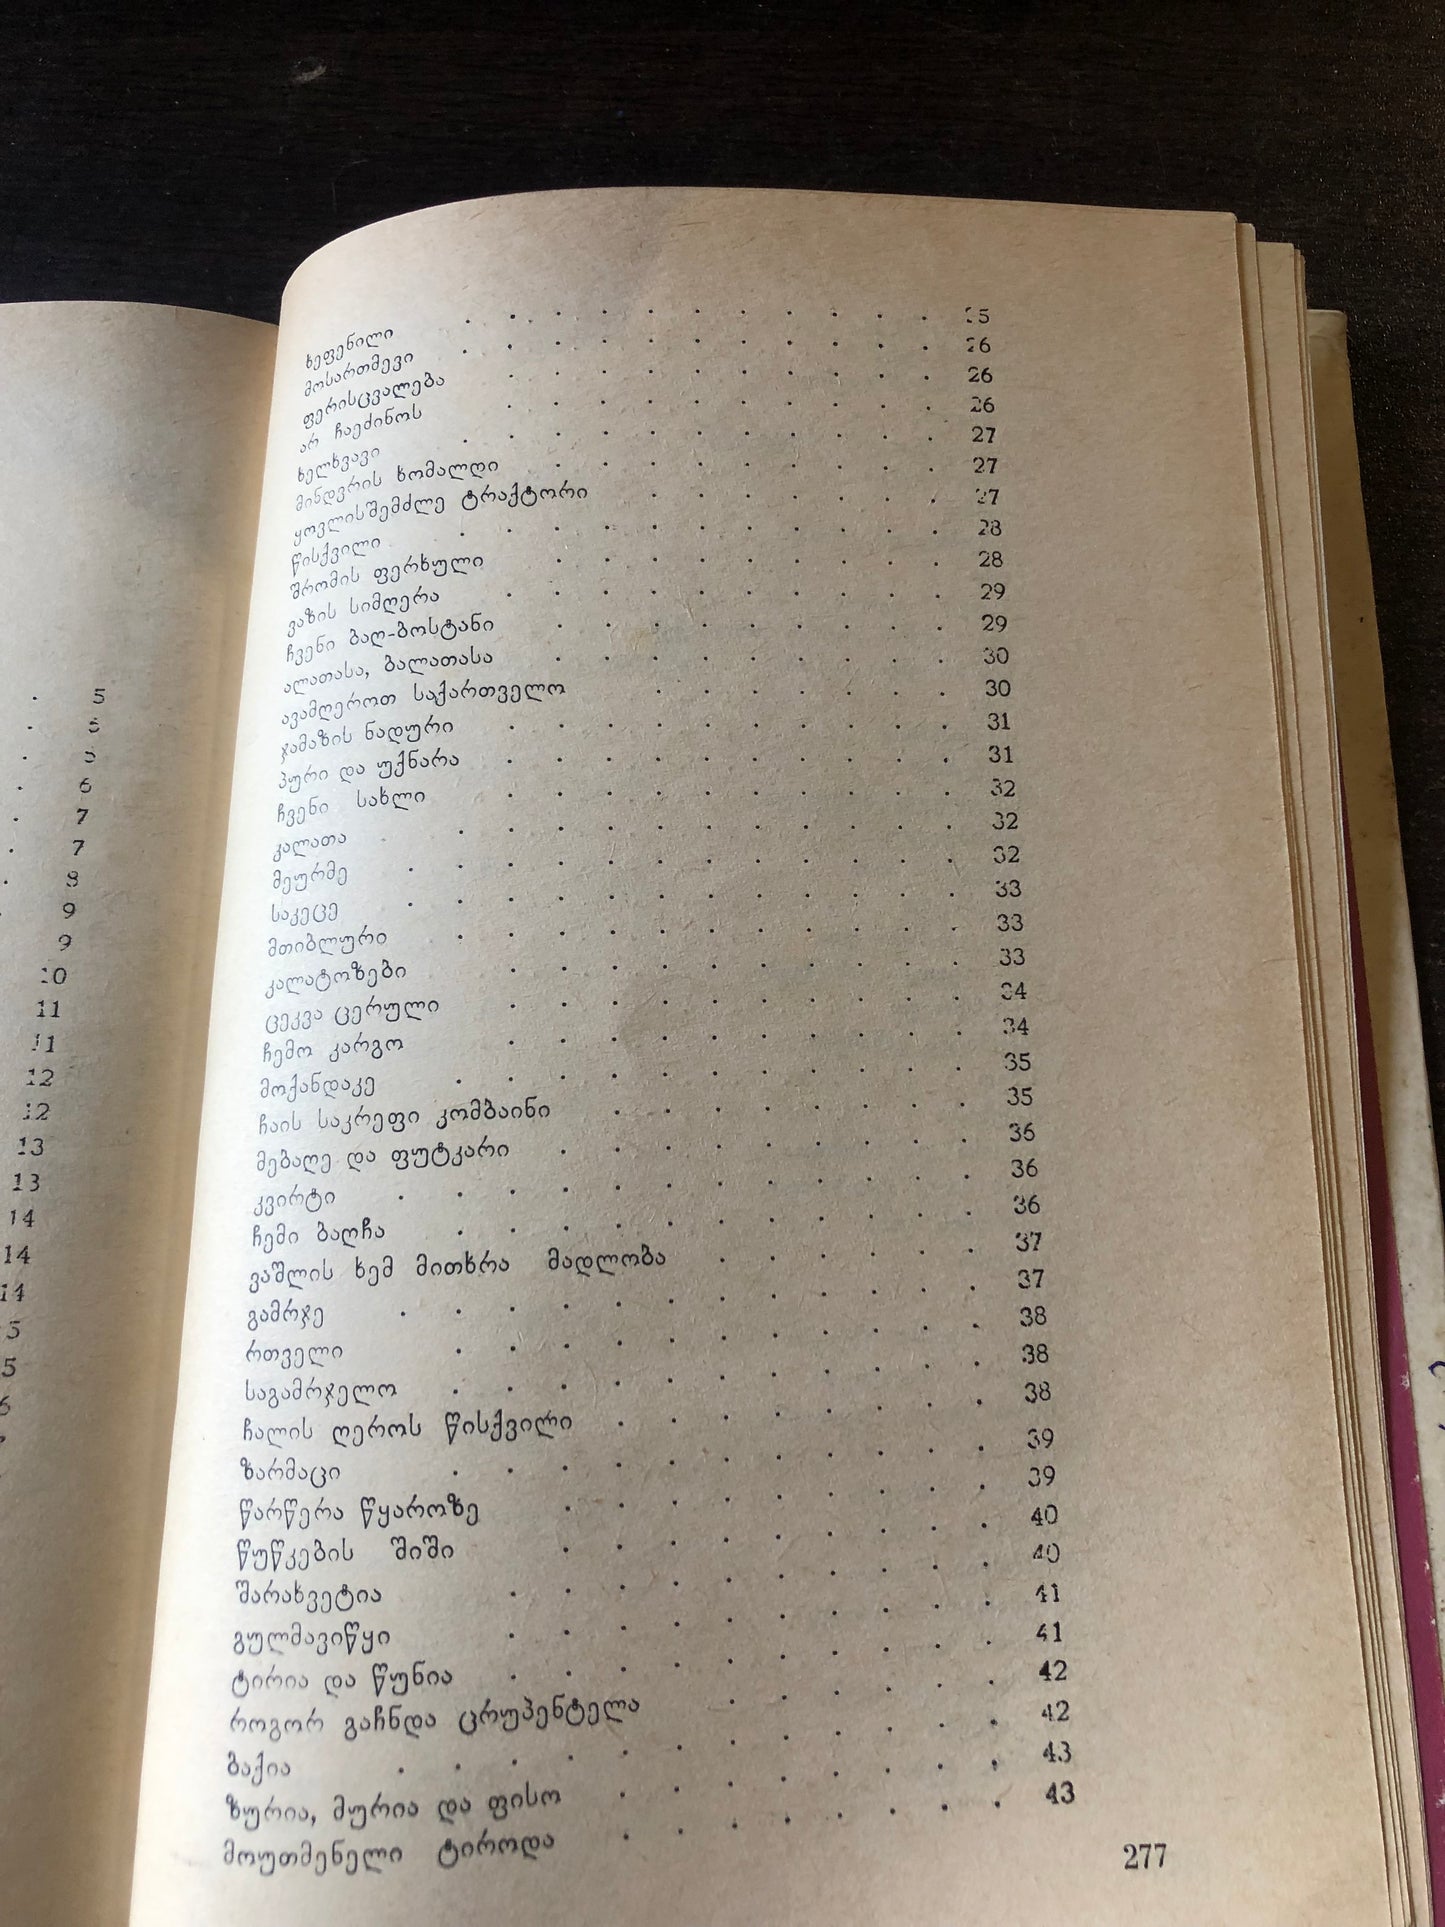 5
5
5
6
7
7
8
9
9
10
11
11
12
12
13
13
14
14
14
5
5
ხეფენილი . . . . . . . . . . . 25
მოსართმევი . . . . . . . . . . . 26
ფერისცვალება . . . . . . . . . . 26
არ ჩაეძინოს . . . . . . . . . . 26
ხელხვავი . . . . . . . . . . . 27
მინდვრის ხომალდი . . . . . . . . . 27
ყოვლისშემძლე ტრაქტორი . . . . . . . 27
წისქვილი . . . . . . . . . . . 28
შრომის ფერხული . . . . . . . . . 28
ვაზის სიმღერა . . . . . . . . . . 29
ჩვენი ბაღ-ბოსტანი . . . . . . . . . 29
ალათასა, ბალათასა . . . . . . . . . 30
ავამღეროთ საქართველო . . . . . . . 30
ჯამაზის ნადური . . . . . . . . . . 31
პური და უქნარა . . . . . . . . . . 31
ჩვენი სახლი . . . . . . . . . . 32
კალათა . . . . . . . . . . . 32
მეურმე . . . . . . . . . . . . 32
საკეცე . . . . . . . . . . . . 33
მთიბლური . . . . . . . . . . . 33
კალატოზები . . . . . . . . . . 33
ცეკვა ცერული . . . . . . . . . . 34
ჩემო კარგო . . . . . . . . . . 34
მოქანდაკე . . . . . . . . . . . 35
ჩაის საკრეფი კომბაინი . . . . . . . . 35
მებაღე და ფუტკარი . . . . . . . . . 36
კვირტი . . . . . . . . . . . . 36
ჩემი ბაღჩა . . . . . . . . . . . 36
ვაშლის ხემ მითხრა მადლობა . . . . . . 37
გამრჯე . . . . . . . . . . . . 37
რთველი . . . . . . . . . . . 38
საგამრჯელო . . . . . . . . . . . 38
ჩალის ღეროს წისქვილი . . . . . . . . 38
ზარმაცი . . . . . . . . . . . 39
წარწერა წყაროზე . . . . . . . . . 39
წუწკების შიში . . . . . . . . . 40
შარახვეტია . . . . . . . . . . 40
გულმავიწყი . . . . . . . . . . 41
ტირია და წუნია . . . . . . . . . . 41
როგორ გაჩნდა ცრუპენტელა . . . . . . 42
ბაქია . . . . . . . . . . . . 42
ზურია, მურია და ფისო . . . . . . . . 43
მოუთმენელი ტიროდა . . . . . . . . 43
277